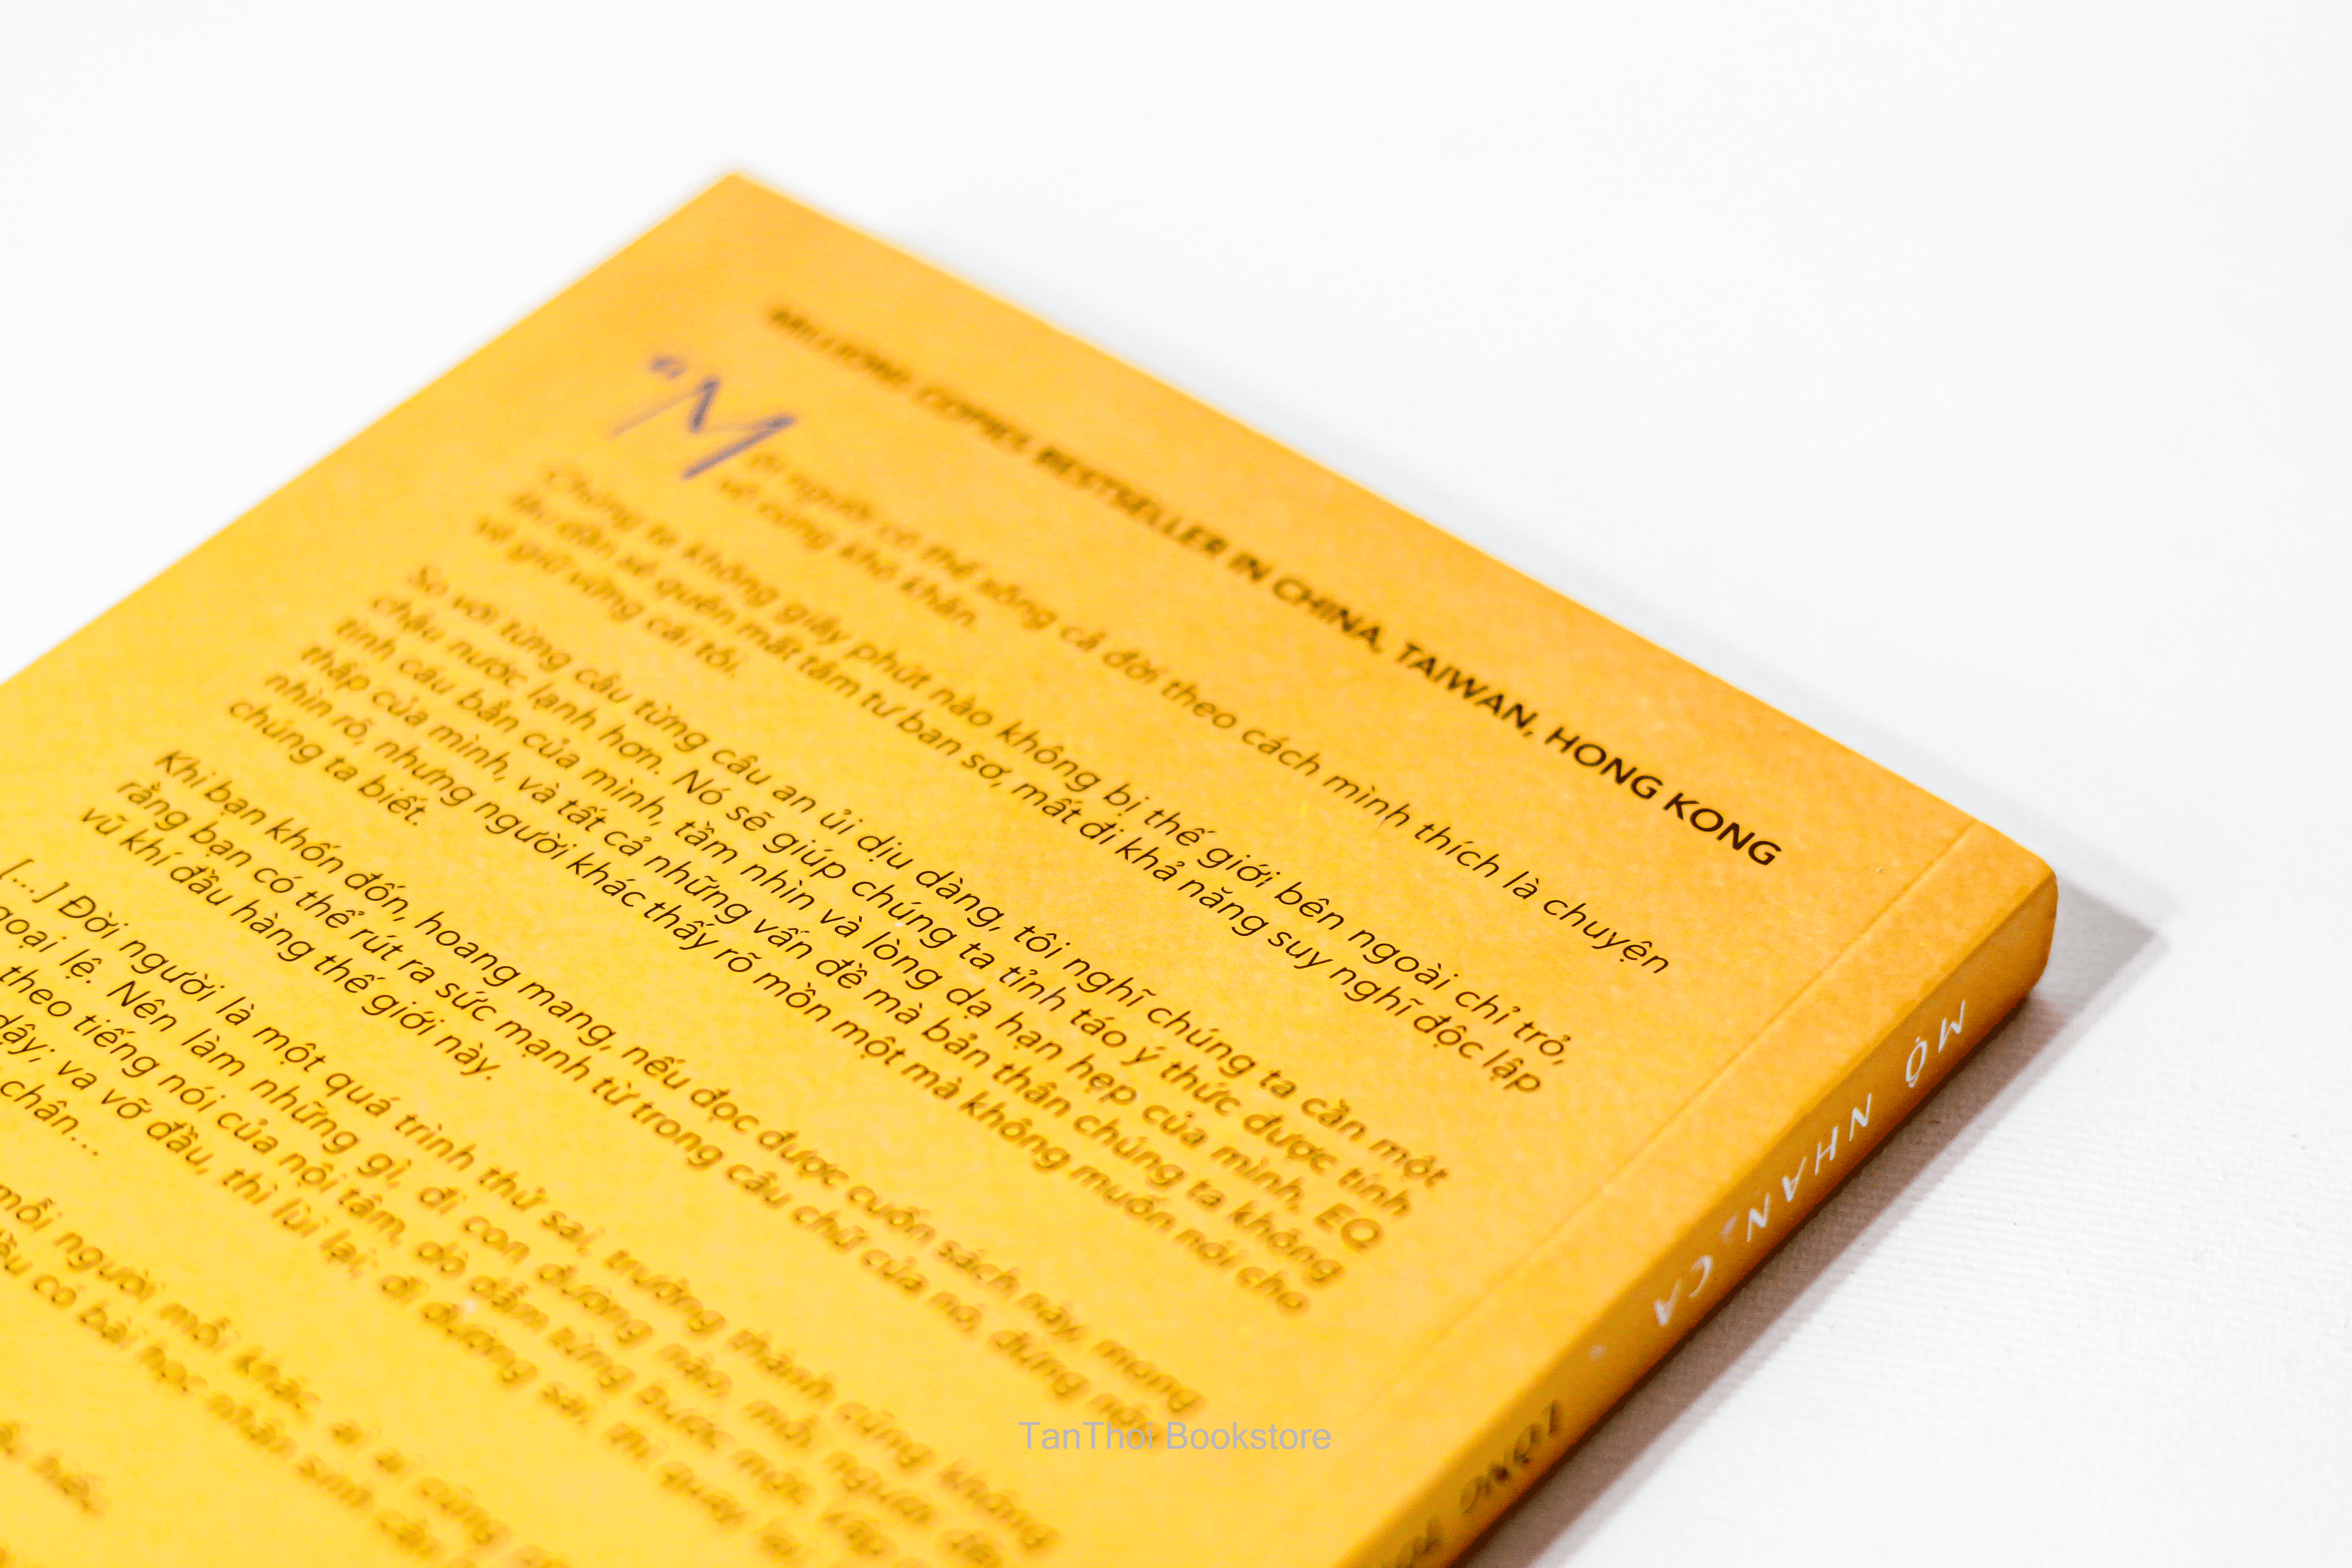 MILLIONS COPIES BESTSELLER IN CHINA, TAIWAN, HONG KONG
“Mỗi người có thể sống cả đời theo cách mình thích là chuyện
vô cùng khó khăn.
Chúng ta không giây phút nào không bị thế giới bên ngoài chỉ trỏ,
lâu dần sẽ quên mất tâm tư ban sơ, mất đi khả năng suy nghĩ độc lập
và giữ vững cái tôi.
So với từng câu từng câu an ủi dịu dàng, tôi nghĩ chúng ta cần một
chậu nước lạnh hơn. Nó sẽ giúp chúng ta tỉnh táo ý thức được tính
tình cáu bẳn của mình, tầm nhìn và lòng dạ hạn hẹp của mình, EQ
thấp của mình, và tất cả những vấn đề mà bản thân chúng ta không
nhìn rõ, nhưng người khác thấy rõ mồn một mà không muốn nói cho
chúng ta biết.
Khi bạn khốn đốn, hoang mang, nếu đọc được cuốn sách này, mong
rằng bạn có thể rút ra sức mạnh từ trong câu chữ của nó, đừng nộp
vũ khí đầu hàng thế giới này.
[...] Đời người là một quá trình thử sai, trưởng thành cũng không
ngoại lệ. Nên làm những gì, đi con đường nào, mỗi người
theo tiếng nói của nội tâm, dò dẫm từng bước một. Vấp
dậy; va vỡ đầu, thì lùi lại; đi đường sai, thì quay lại
chân...
mỗi người mỗi khác, ai ai cũng
đều có bài học nhân sinh cần
MỘ NHAN CA
TỐNG
TanThoi Bookstore